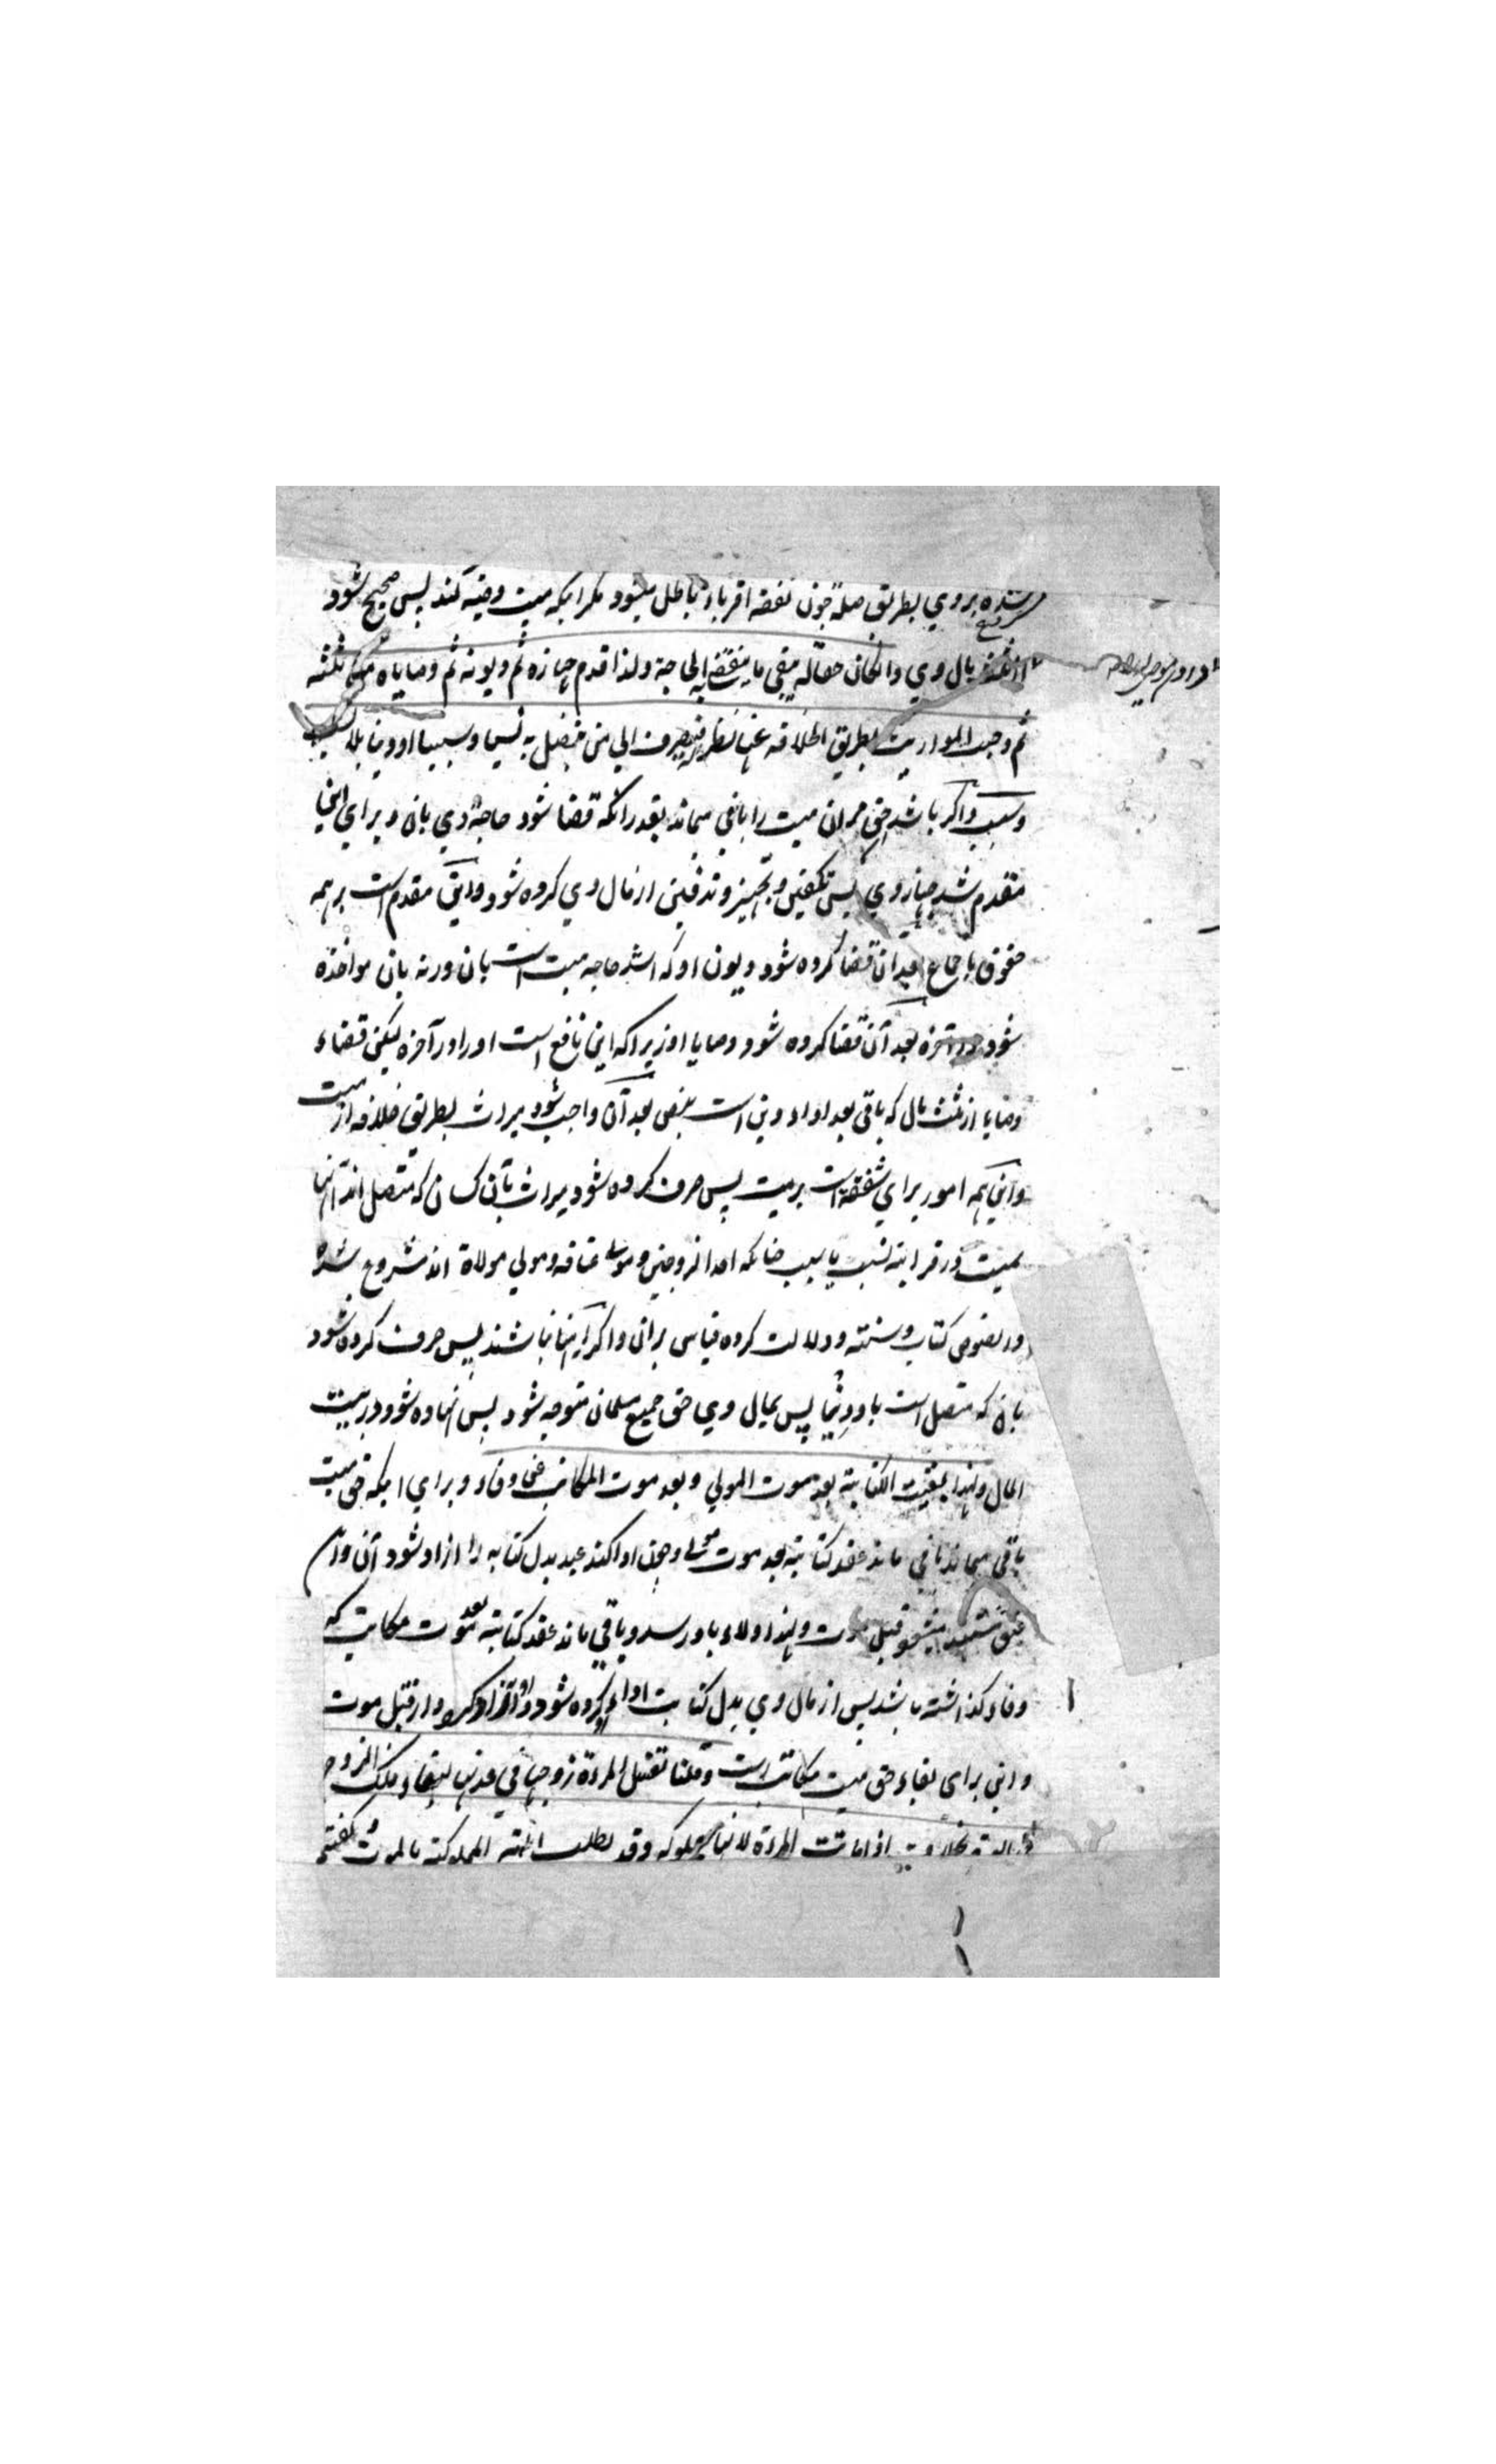 شده بر وي بطريق صلة چون نفقه اقرباء باطل ميشود مكر اينكه ميت وصية كند پس صحيح شود
از ثلث مال وي وان كان حقا له يبقى ما ينقضي به الحاجة ولذا قدم جهازه ثم ديونه ثم وصاياه من ثلثه
ثم وجبت المواريث بطريق الخلافه عنه نظرا له فيصرف الي من يتصل به نسبا وسببا او دينا بلا نسب
وسبب واكر باشد حق مر ان ميت را باقي ميماند بقدر انكه قضا شود حاجة وي بان و براي اينها
مقدم شد جهاز وي پس تكفين و تجهيز و تدفين از مال وي كرده شود و اين مقدم است بر همه
حقوق باجماع بعد ان قضا كرده شود ديون او كه اشد حاجه ميت است بان ورنه بان مواخذه
شود در آخرة بعد آن قضا كرده شود وصايا او زيرا كه اين نافع است او را در آخرة ليكن قضاء
وصايا از ثلث مال كه باقي بعد اداء دين است بنص بعد آن واجب شود ميراث بطريق خلافه از ميت
و اين همه امور براي شفقة است بر ميت پس صرف كرده شود ميراث بآن كسان كه متصل اند آنها
بميت در قرابته نسب يا سبب چنانكه احد الزوجين و مولى عتاقه و مولي موالاة اند مشروع شده
در نصوص كتاب و سنته و دلالت كرده قياس بران و اكر اينها نباشند پس صرف كرده شود
بان كه متصل است با و دينا پس بمال وي حق جميع مسلمان متوجه شود پس نهاده شود در بيت
المال ولهذا بقيت الكتابة بعد موت المولي و بعد موت المكاتب عن وفاء و براي اينكه حق ميت
باقي ميماند باقي ماند عقد كتابته بعد موت مولى و چون ادا كند عبد بدل كتابه را ازاد شود آن و اين
عتق مستند ميشود قبل موت ولهذا ولاء باو رسد و باقي ماند عقد كتابته بعد موت مكاتب كه
وفاء كذاشته باشد پس از مال وي بدل كتابت اداء كرده شود و از قبل موت
و اين براى بقاء حق ميت مكاتب است وقلنا تغسل المرءة زوجها في عدتها لبقاء ملك الزوج
في العدة بخلاف اذا ماتت المرءة لانها مملوكه وقد بطلت اهلية المملوكية بالموت كفتيم